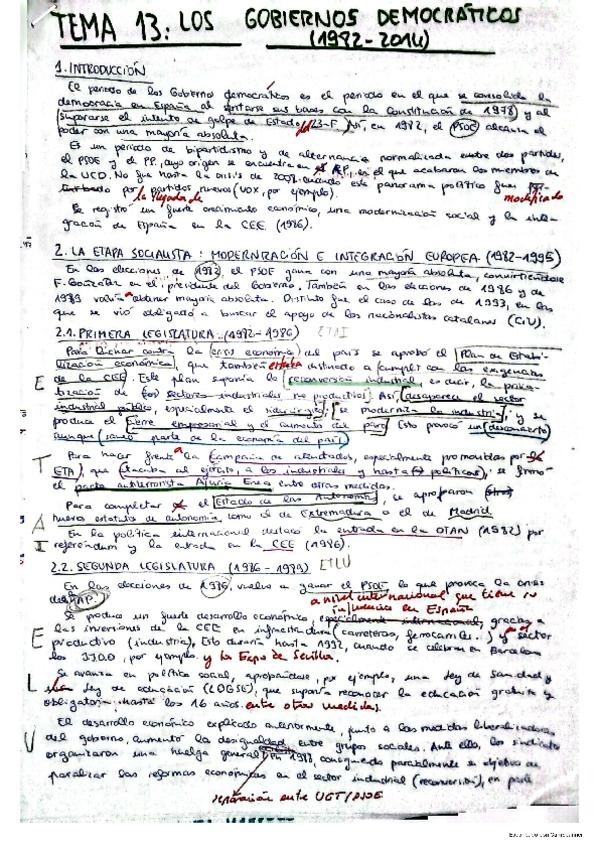 TEMA 13: LOS GOBIERNOS DEMOCRÁTICOS
(1982-2014)
1. INTRODUCCIÓN
El periodo de los Gobiernos democráticos es el periodo en el que se consolida la
democracia en España al sentarse sus bases con la Constitución de 1978 y al
superarse el intento de golpe de Estado 23-F. Así, en 1982, el PSOE alcanza el
poder con una mayoría absoluta.
Es un periodo de bipartidismo y de alternancia normalizada entre dos partidos,
el PSOE y el PP, cuyo origen se encuentra en AP, en el que acabaran los miembros de
la UCD. No fue hasta la crisis de 2008 cuando este panorama político fue modificado
por la llegada de partidos nuevos (VOX, por ejemplo).
Se registró un fuerte crecimiento económico, una modernización social y la inte-
gración de España en la CEE (1986).
2. LA ETAPA SOCIALISTA: MODERNIZACIÓN E INTEGRACIÓN EUROPEA (1982-1995)
En las elecciones de 1982, el PSOE gana con una mayoría absoluta, convirtiéndose
F. González en el presidente del Gobierno. También en las elecciones de 1986 y de
1989 volvía a obtener mayoría absoluta. Distinto fue el caso de las de 1993, en las
que se vio obligado a buscar el apoyo de los nacionalistas catalanes (CiU).
2.1. PRIMERA LEGISLATURA (1982-1986) ETAI
Para luchar contra la crisis económica del país se aprobó el Plan de Estabi-
lización económica, que también estaba destinado a cumplir con las exigencias
E de la CEE. Este plan suponía la reconversión industrial, es decir, la
de los sectores industriales no productivos. Así, desaparece el sector
industrial público, especialmente el siderúrgico, se moderniza la industria, y se
produce el cierre empresarial y el aumento del paro. Esto provocó un descontento
aunque saneó parte de la economía del país.
T Para hacer frente a la campaña de atentados, especialmente promovidas por
ETA, que atacaba al ejército, a los industriales y hasta políticos, se firmó
el pacto antiterrorista Ajuria Enea entre otras medidas.
Para completar el Estado de las Autonomías, se aprobaron
A nuevos estatutos de autonomía, como el de Extremadura o el de Madrid.
I En la política internacional destacó la entrada en la OTAN (1982) por
referéndum y la entrada en la CEE (1986).
2.2. SEGUNDA LEGISLATURA (1986-1989) ETLU
En las elecciones de 1986, vuelve a ganar el PSOE, lo que provoca la crisis
del AP. a nivel internacional que tiene su influencia en España
Se produce un fuerte desarrollo económico, gracias a
E las inversiones de la CEE en infraestructura (carreteras, ferrocarriles..) y al sector
productivo (industria). Esto duraría hasta 1992, cuando se celebran en Barcelona
los JJOO, por ejemplo y la Expo de Sevilla.
Se avanza en política social, aprobándose, por ejemplo, una Ley de Sanidad y
L Ley de educación (LOGSE), que suponía reconocer la educación gratuita y
obligatoria hasta los 16 años entre otras medidas.
U El desarrollo económico explicado anteriormente, junto a las medidas liberalizadoras
del gobierno, aumentó la desigualdad entre grupos sociales. Ante ello, los sindicatos
organizaron una huelga general en 1988, consiguiendo parcialmente su objetivo de
paralizar las reformas económicas en el sector industrial (reconversión), en parte
separación entre UGT/PSOE